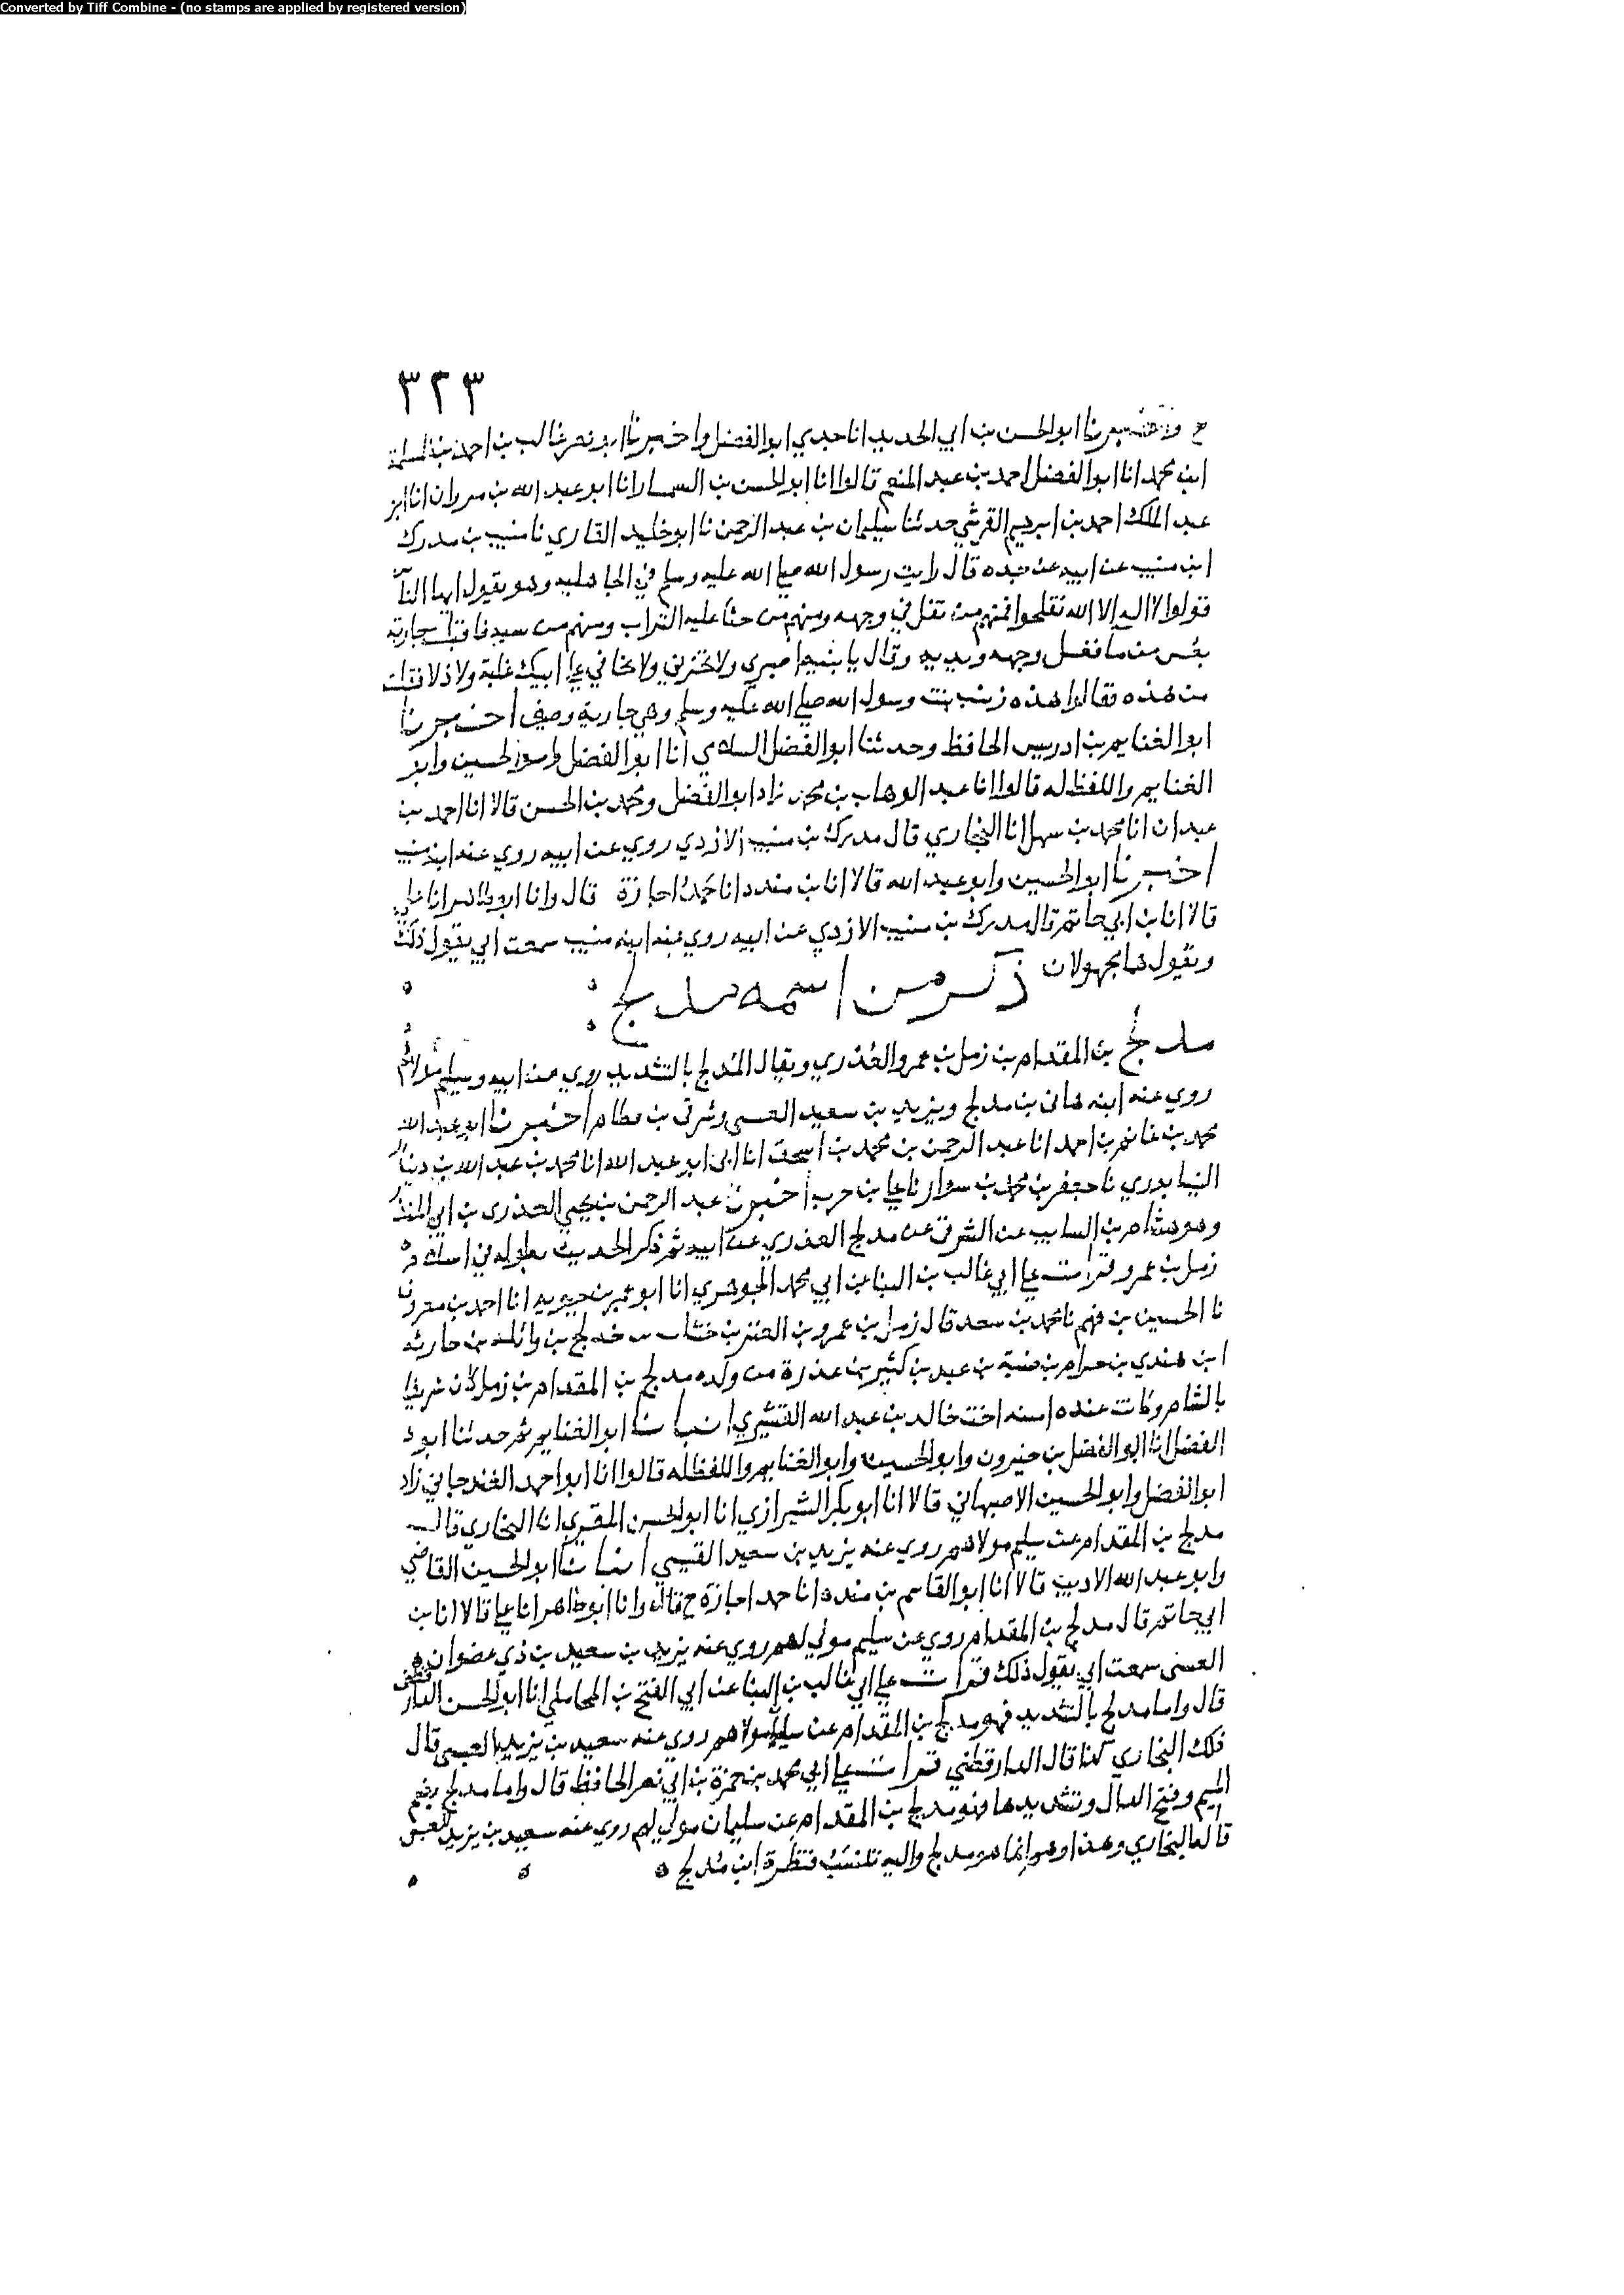 Converted by Tiff Combine - (no stamps are applied by registered version)
٣٢٣
ح واخبرنا ابو الحسن بن ابي الحديد انا جدي ابو الفضل واخبرنا ابو نصر غالب بن احمد بن المسلمة
ابن محمد انا ابو الفضل احمد بن عبد المنعم قالوا انا ابو الحسن بن السمسار انا ابو عبد الله بن مروان انا ابو
عبد الملك احمد بن ابرهيم القرشي حدثنا سليمان بن عبد الرحمن نا ابو خليد القاري نا منيب بن مدرك
ابن منيب عن ابيه عن جده قال رايت رسول الله صلى الله عليه وسلم في الجاهليه وهو يقول ايها الناس
قولوا لا اله الا الله تفلحوا فمنهم من تفل في وجهه ومنهم من حثا عليه التراب ومنهم من سبه فاقبلت جارية
بعس من ما فغسل وجهه ويديه وقال يا بنيه اصبري ولا تحزني ولا تخافي على ابيك غلبة ولا ذلا فقلت
من هذه فقالوا هذه زينب بنت رسول الله صلى الله عليه وسلم وهي جارية وصيف اخبرنا
ابو الغنايم بن ادريس الحافظ وحدثنا ابو الفضل السلامي انا ابو الفضل وابو الحسين وابو
الغنايم واللفظ له قالوا انا عبد الوهاب بن محمد زاد ابو الفضل ومحمد بن الحسن قالا انا احمد بن
عبدان انا محمد بن سهل انا البخاري قال مدرك بن منيب الازدي روي عن ابيه روي عنه ابنه منيب
اخبرنا ابو الحسين وابو عبد الله قالا انا بن منده انا حمد اجازة قال وانا ابو طاهر انا علي
قالا انا بن ابي حاتم قال مدرك بن منيب الازدي عن ابيه روي عنه ابنه منيب سمعت ابي يقول ذلك
ويقول هما مجهولان
ذكر من اسمه مدلج
مدلج بن المقدام بن زمل بن عمرو العذري ويقال المدلج بالتشديد روي عن ابيه وسليم مولاهم
روي عنه ابنه هانى بن مدلج ويزيد بن سعيد العسى وشرقى بن قطام اخبرنا ابو عبد الله
محمد بن غانم بن احمد انا عبد الرحمن بن محمد بن اسحق انا ابى ابو عبد الله انا محمد بن عبد الله بن دينار
النيسابوري نا جعفر بن محمد بن سوار نا علي بن حرب اخبرنا عبد الرحمن بن يحيى العذرى بن ابي المنذر
وهو هشام بن السايب عن الشرقى عن مدلج العذري عن ابيه ثم ذكر الحديث بطوله في اسلام
زمل بن عمرو قرات على ابي غالب بن البنا عن ابي محمد الجوهري انا ابو عمر بن حيويه انا احمد بن معروف
نا الحسين بن فهم نا محمد بن سعد قال زمل بن عمرو بن العنز بن خشاف بن خديج بن واثلة بن حارثه
ابن هندي بن حرام بن ضنة بن عبد بن كثير بن عذرة من ولده مدلج بن المقدام بن زمل كان شريفا
بالشام وكانت عنده امنه اخت خالد بن عبد الله القشيري انبانا ابو الغنايم ثم حدثنا ابو
الفضل انا ابو الفضل بن خيرون وابو الحسين وابو الغنايم واللفظ له قالوا انا ابو احمد الغندجاني زاد
ابو الفضل وابو الحسين الاصبهاني قالا انا ابو بكر الشيرازي انا ابو الحسن المقري انا البخاري قال
مدلج بن المقدام عن سليم مولاهم روي عنه يزيد بن سعيد القيسي انبانا ابو الحسين القاضي
وابو عبد الله الاديب قالا انا ابو القاسم بن منده انا حمد اجازة ح قال وانا ابو طاهر انا علي قالا انا بن
ابي حاتم قال مدلج بن المقدام روي عن سليم مولي لهم روي عنه يزيد بن سعيد بن ذي عضوان
العسى سمعت ابي يقول ذلك قرات على ابي غالب بن البنا عن ابي الفتح بن المحاملي انا ابو الحسن الدارقطني
قال واما مدلج بالتشديد فهو مدلج بن المقدام عن سليم مولاهم روي عنه سعيد بن يزيد العبسى قال
ذلك البخاري كذا قال الدارقطني قرات على ابي محمد بن حمزة بن ابي نصر الحافظ قال واما مدلج بضم
الميم وفتح الدال وتشديدها فهو مدلج بن المقدام عن سليمان مولي لهم روي عنه سعيد بن يزيد العبسى
قاله البخاري وهذا وهم انما هو مدلج واليه تنسب قنطرة ابن مدلج